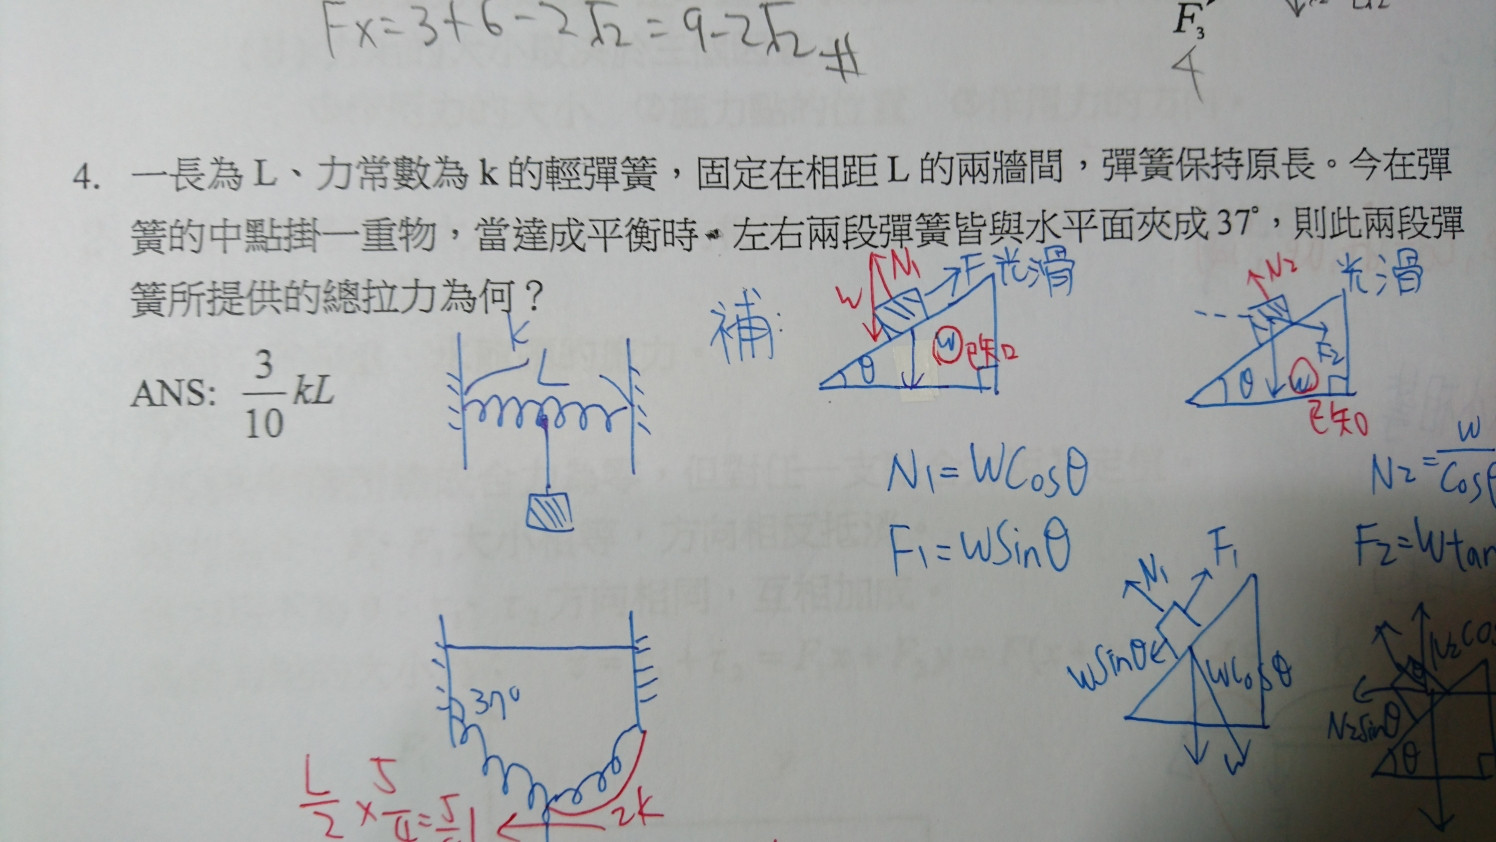 Fx=3+6-2√2=9-2√2 #
F₃
4
4. 一長為 L、力常數為 k 的輕彈簧，固定在相距 L 的兩牆間，彈簧保持原長。今在彈
簧的中點掛一重物，當達成平衡時，左右兩段彈簧皆與水平面夾成 37°，則此兩段彈
簧所提供的總拉力為何？
ANS: 3/10 kL
k
L
補:
W N₁ F 光滑
θ W 已知
N₂ 光滑
F₂
θ W 已知
N₁=WCosθ
F₁=WSinθ
N₂=W/Cosθ
F₂=Wtan
N₁ F₁
WSinθ WCosθ
W
N₂Cos
N₂Sinθ
θ
37°
L/2 × 5/4 = 5
2K